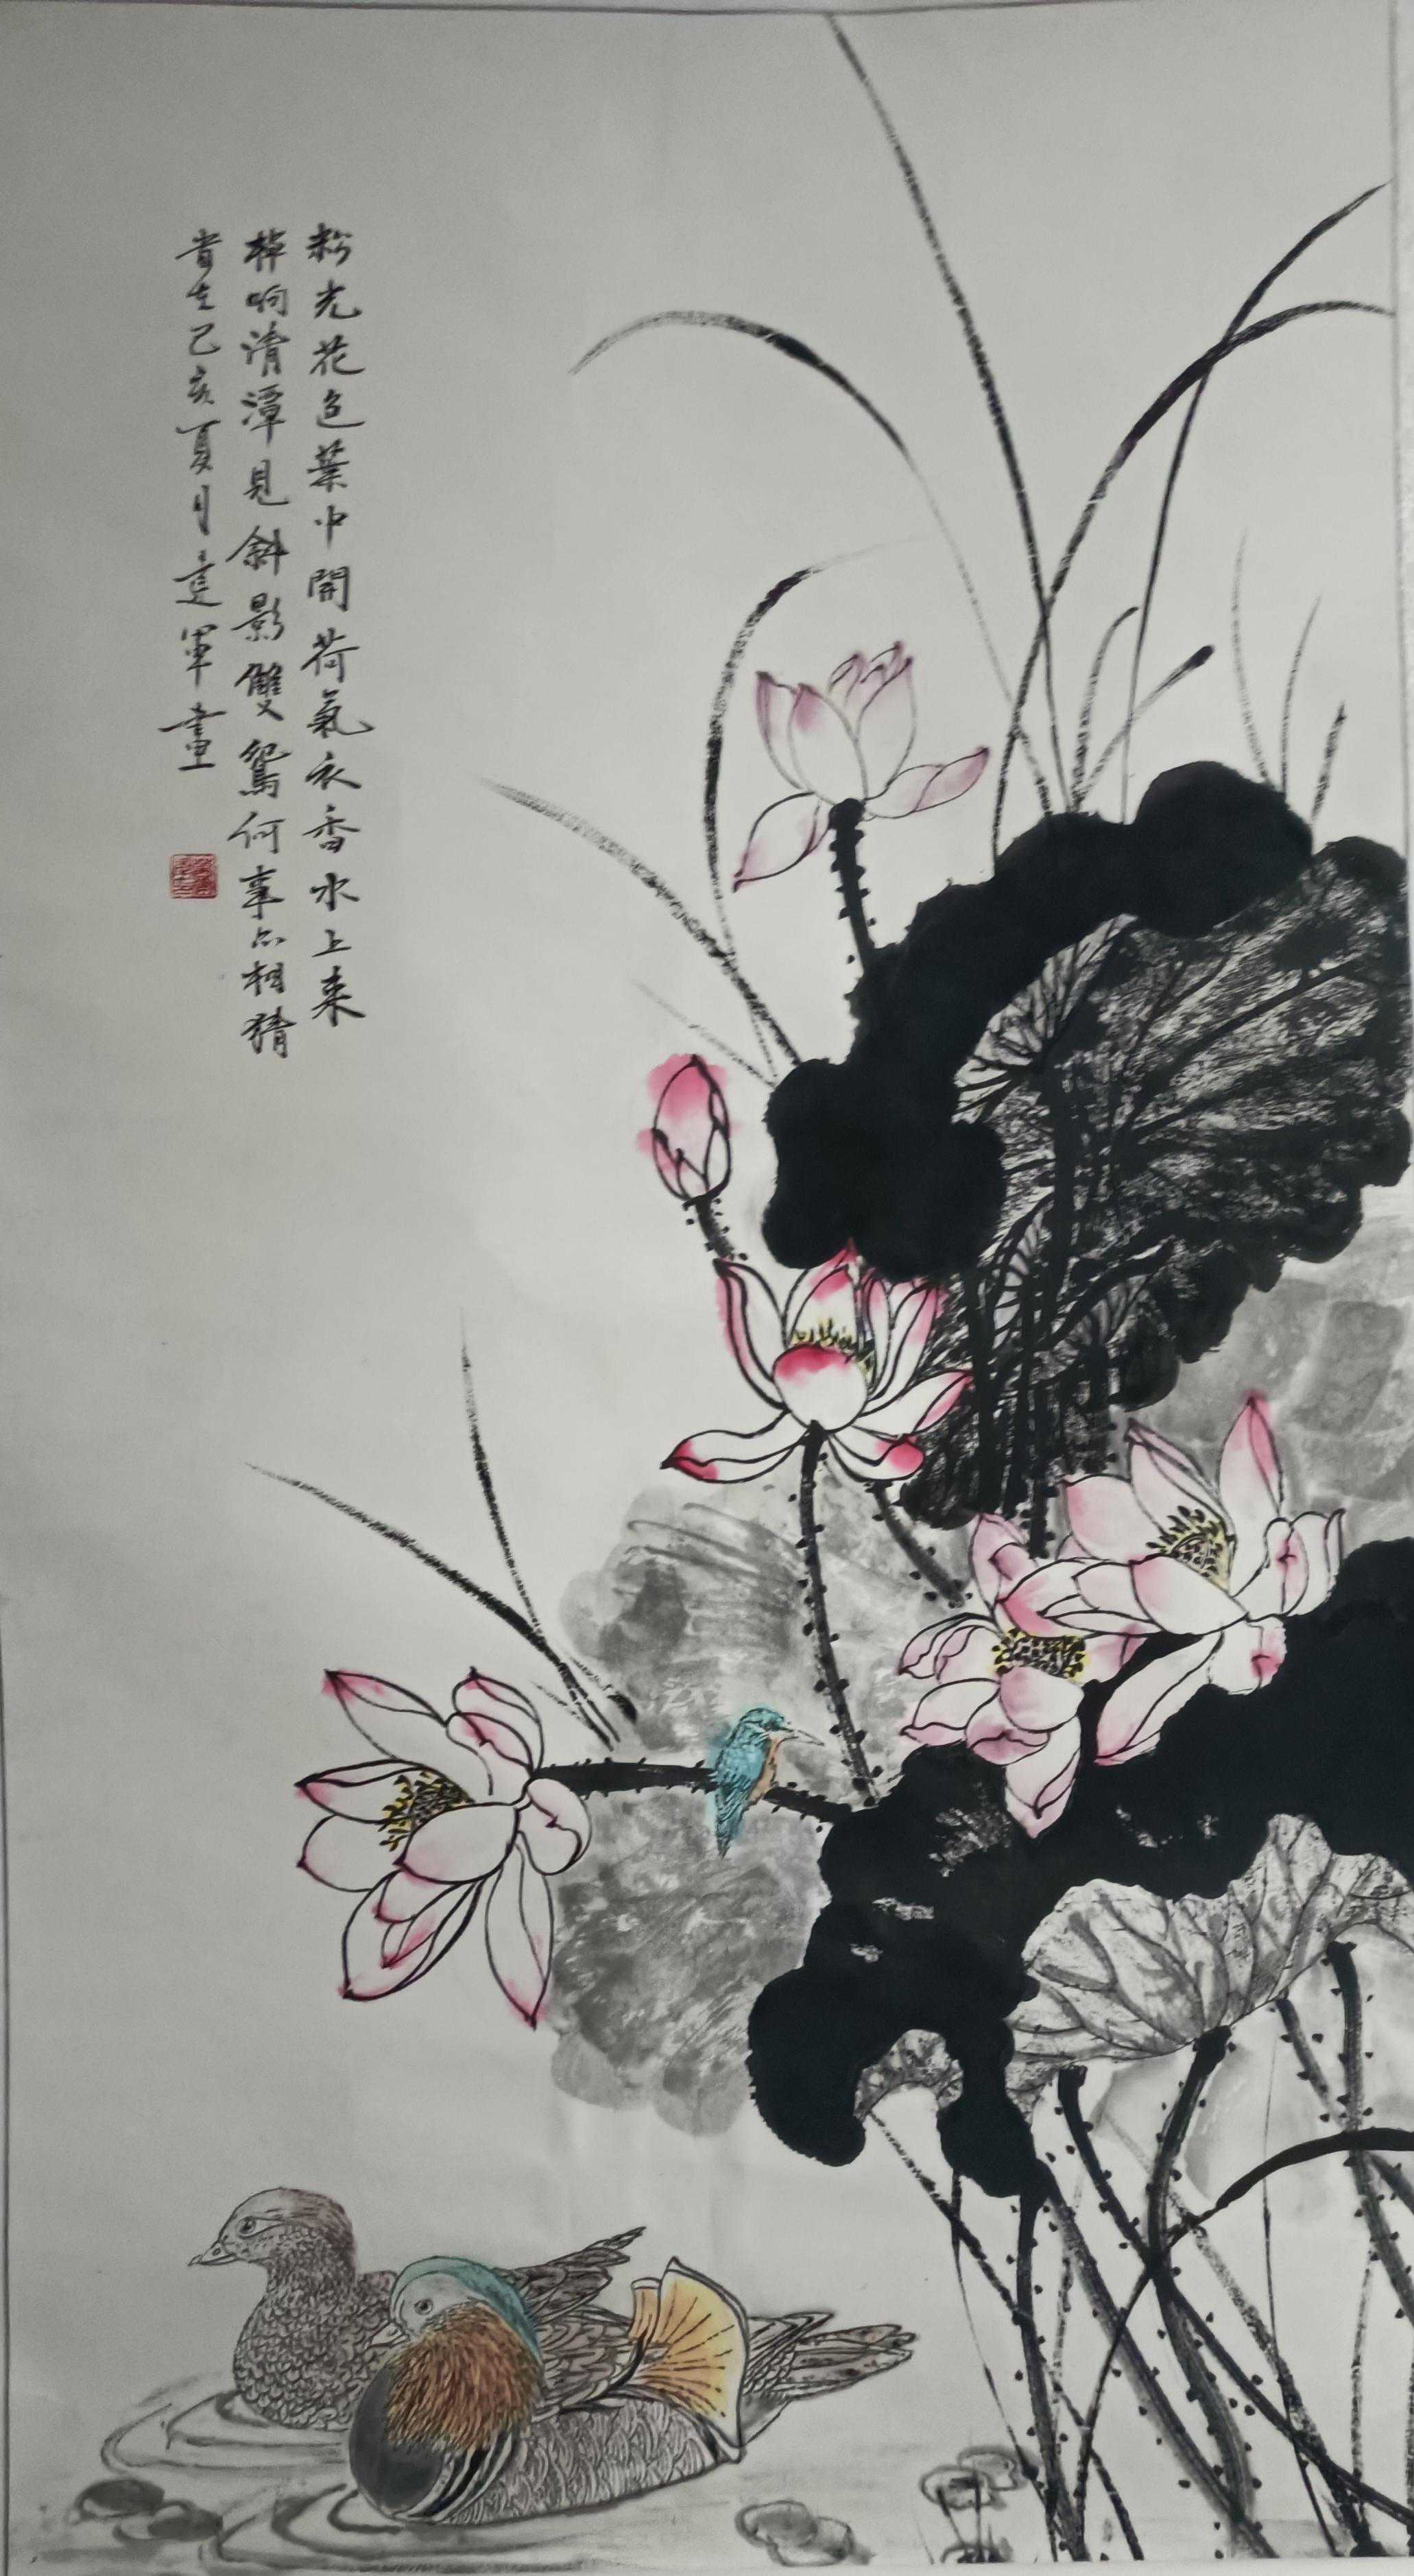 粉光花色葉中開荷氣衣香水上来
棹响清潭見斜影雙鴛何事亦相猜
岁在己亥夏月建軍畫